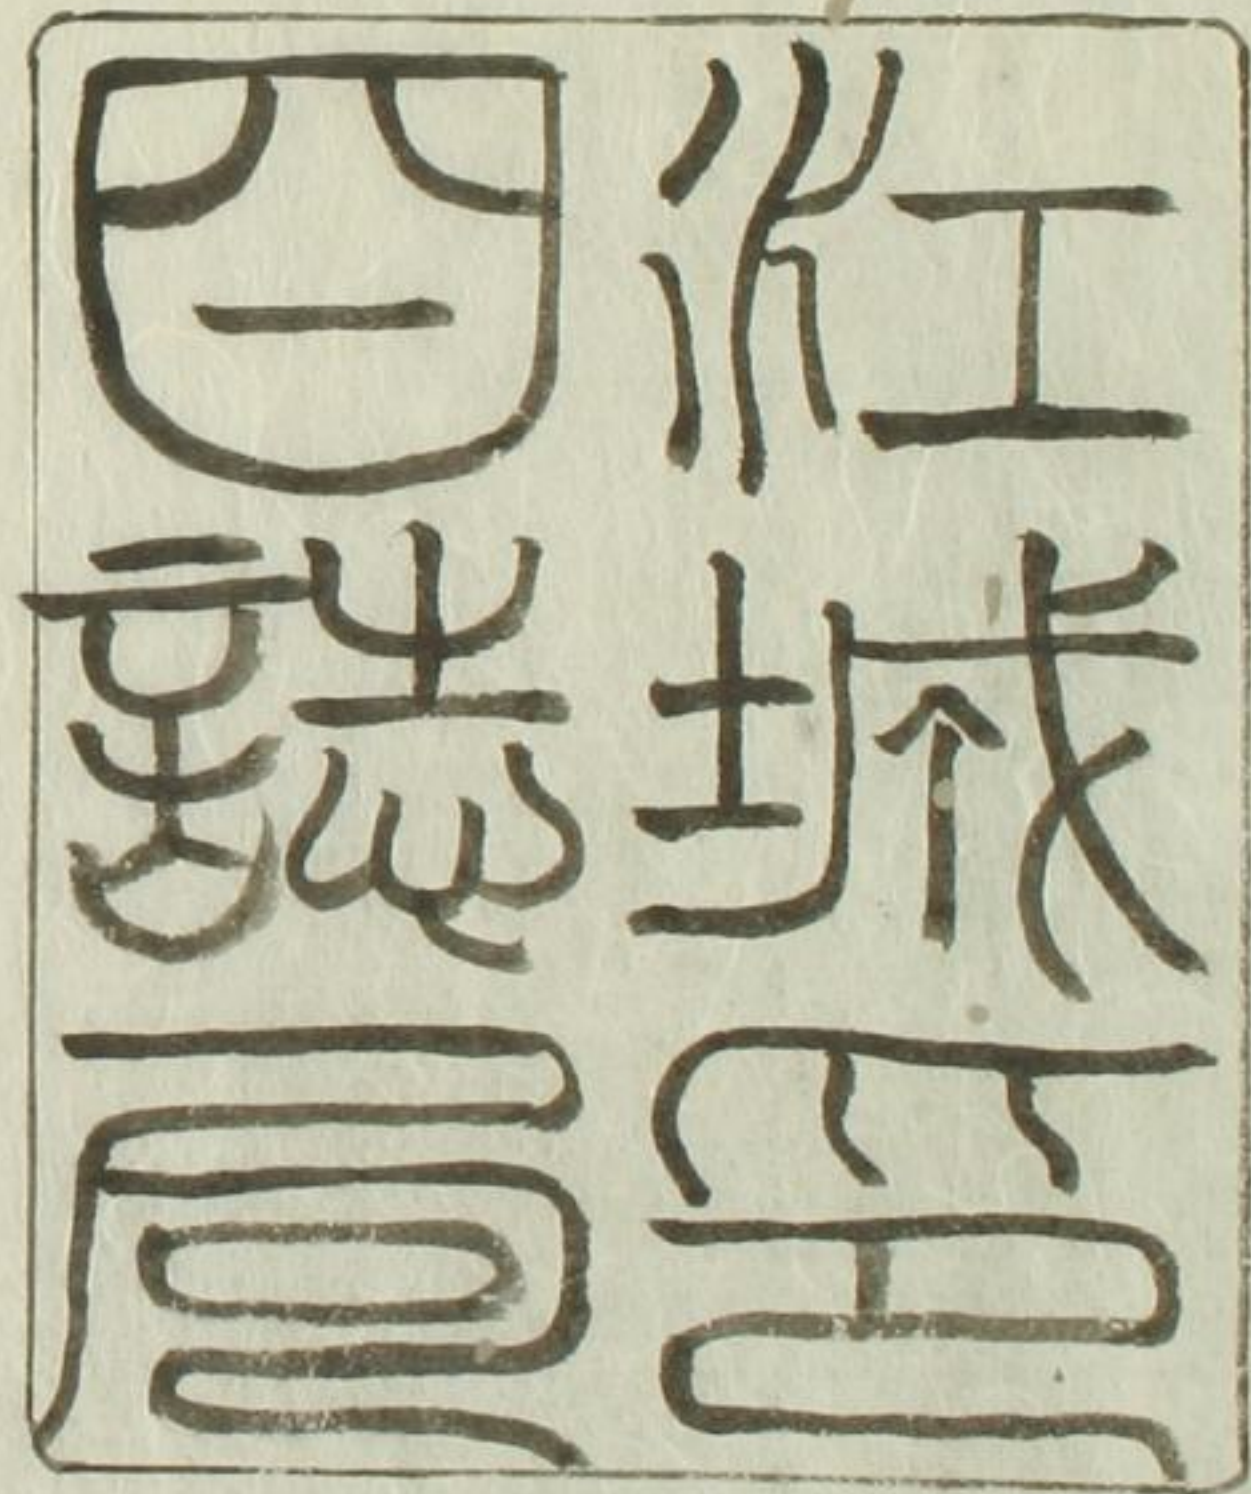 江城印
日誌局